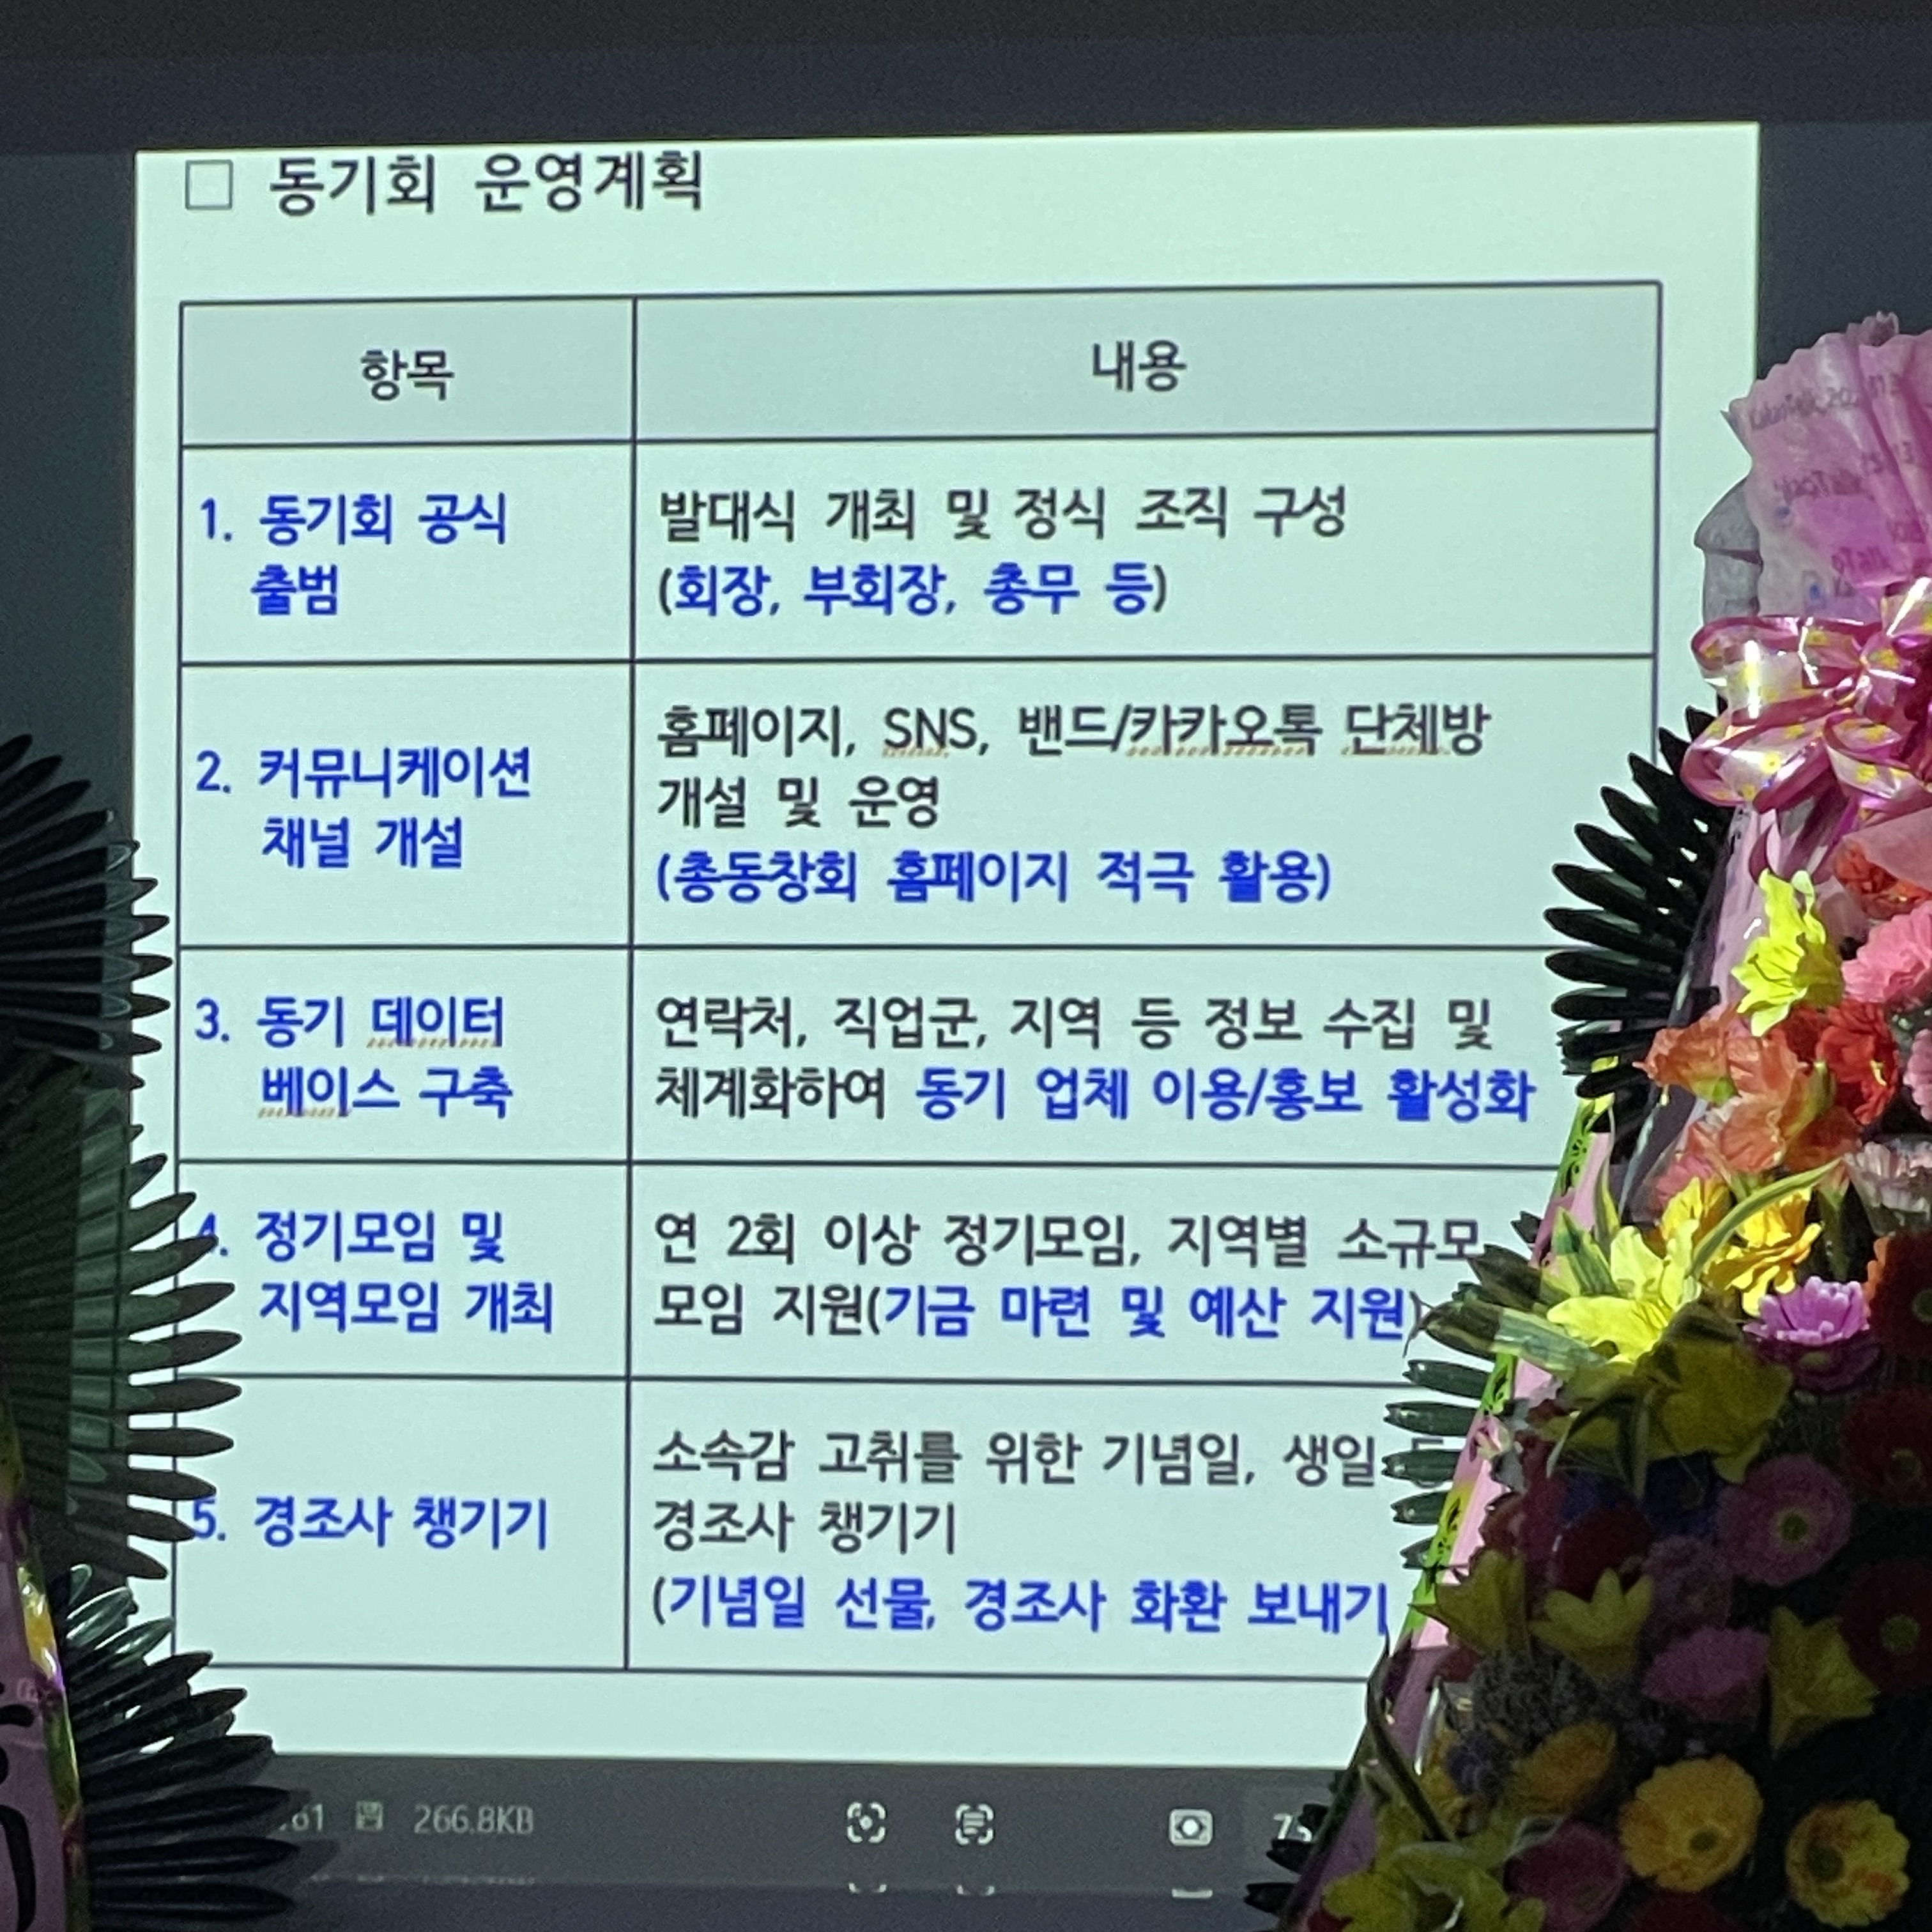 □ 동기회 운영계획
항목
내용
1. 동기회 공식
출범
발대식 개최 및 정식 조직 구성
(회장, 부회장, 총무 등)
2. 커뮤니케이션
채널 개설
홈페이지, SNS, 밴드/카카오톡 단체방
개설 및 운영
(총동창회 홈페이지 적극 활용)
3. 동기 데이터
베이스 구축
연락처, 직업군, 지역 등 정보 수집 및
체계화하여 동기 업체 이용/홍보 활성화
4. 정기모임 및
지역모임 개최
연 2회 이상 정기모임, 지역별 소규모
모임 지원(기금 마련 및 예산 지원)
5. 경조사 챙기기
소속감 고취를 위한 기념일, 생일
경조사 챙기기
(기념일 선물, 경조사 화환 보내기
266.8KB